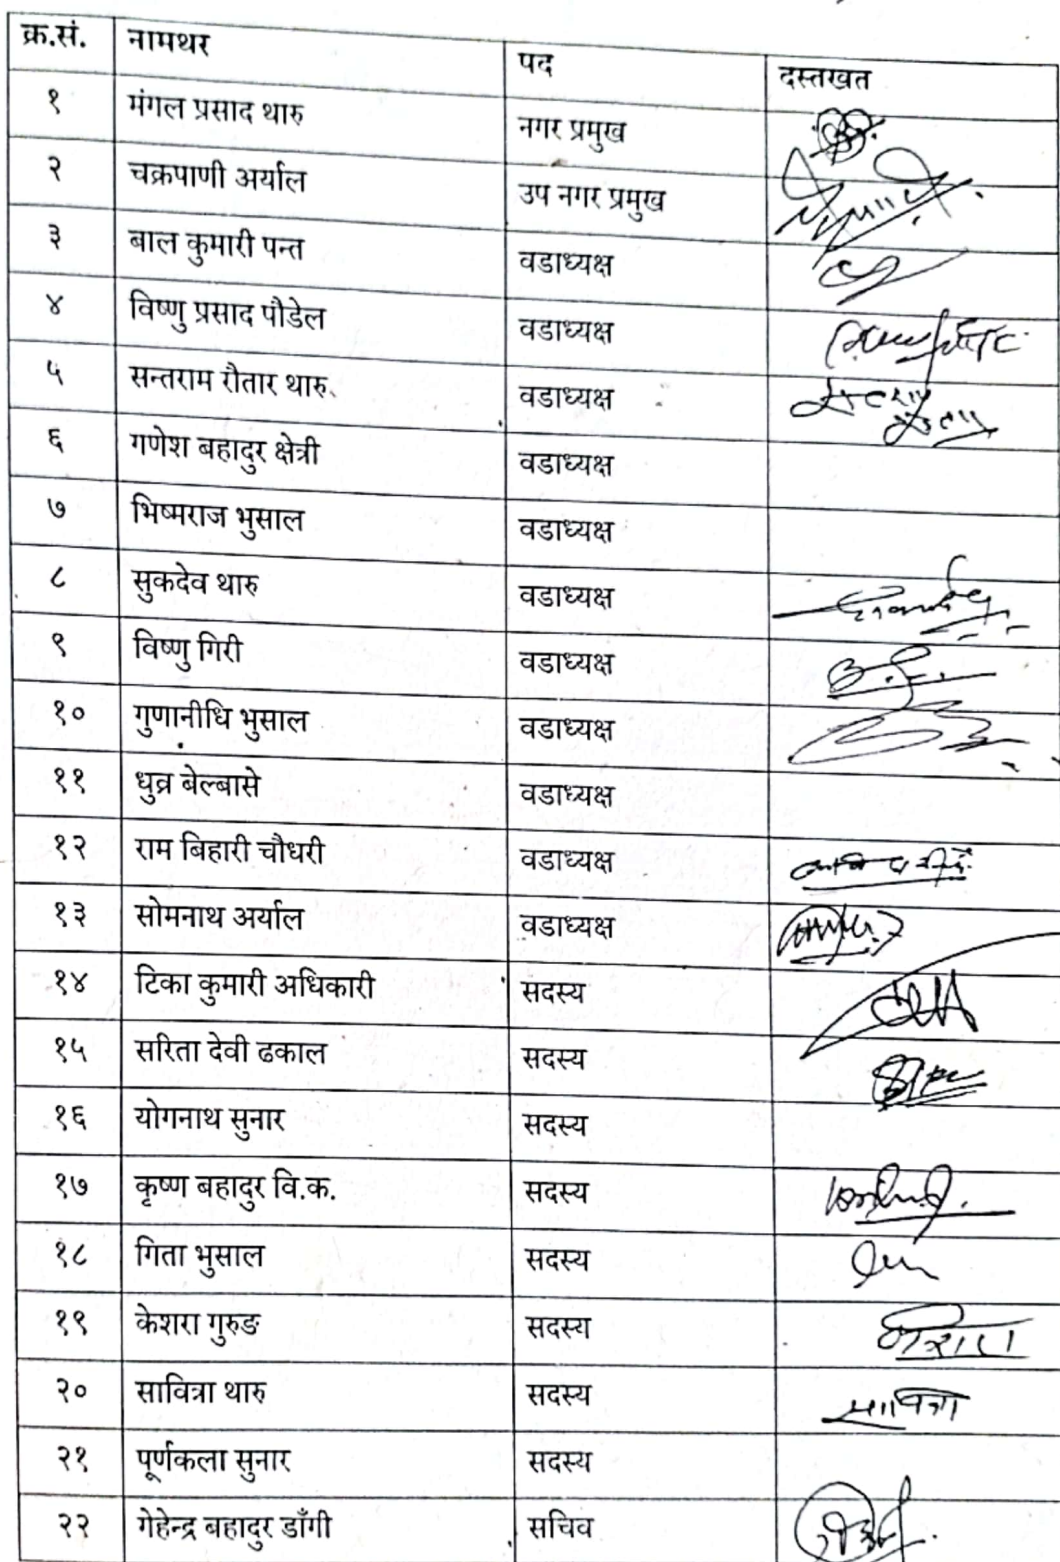 क्र.सं. नामथर पद दस्तखत
१ मंगल प्रसाद थारु नगर प्रमुख
२ चक्रपाणी अर्याल उप नगर प्रमुख
३ बाल कुमारी पन्त वडाध्यक्ष
४ विष्णु प्रसाद पौडेल वडाध्यक्ष
५ सन्तराम रौतार थारु वडाध्यक्ष
६ गणेश बहादुर क्षेत्री वडाध्यक्ष
७ भिष्मराज भुसाल वडाध्यक्ष
८ सुकदेव थारु वडाध्यक्ष
९ विष्णु गिरी वडाध्यक्ष
१० गुणानीधि भुसाल वडाध्यक्ष
११ धुव्र बेल्बासे वडाध्यक्ष
१२ राम बिहारी चौधरी वडाध्यक्ष
१३ सोमनाथ अर्याल वडाध्यक्ष
१४ टिका कुमारी अधिकारी सदस्य
१५ सरिता देवी ढकाल सदस्य
१६ योगनाथ सुनार सदस्य
१७ कृष्ण बहादुर वि.क. सदस्य
१८ गिता भुसाल सदस्य
१९ केशरा गुरुङ सदस्य
२० सावित्रा थारु सदस्य सावित्रा
२१ पूर्णकला सुनार सदस्य
२२ गेहेन्द्र बहादुर डाँगी सचिव